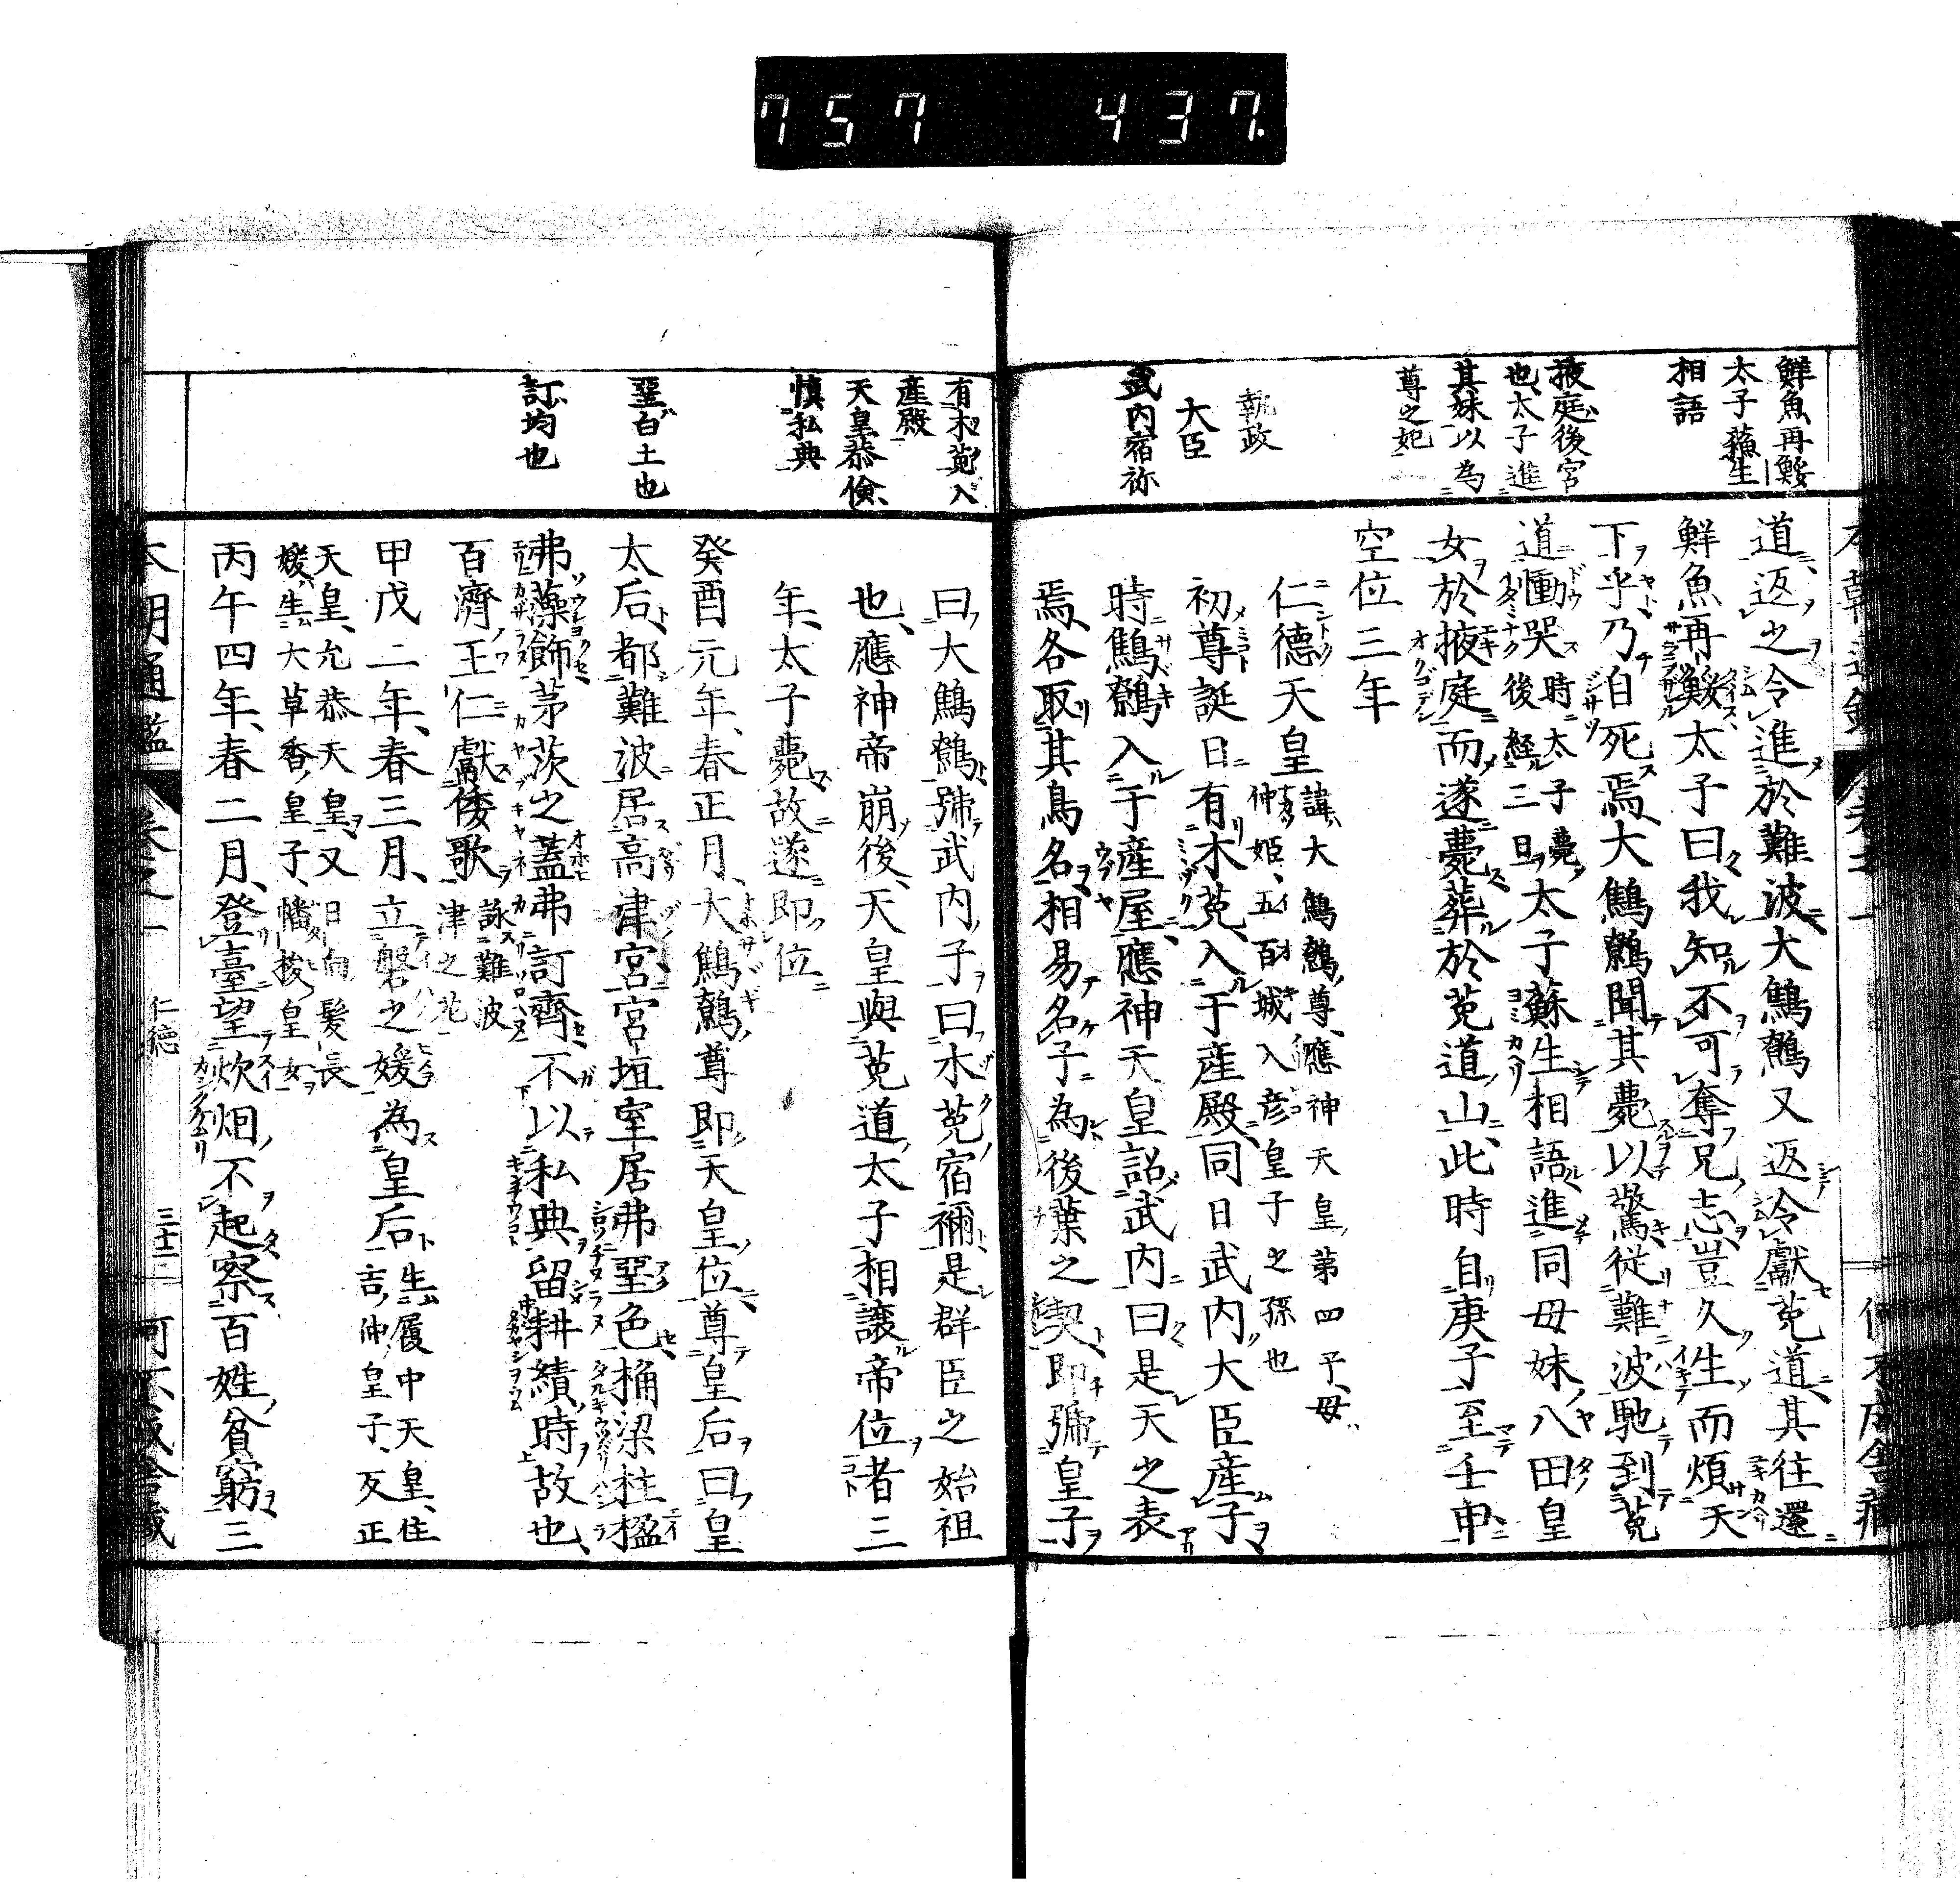 757 437
鮮魚再鮾
太子蘓生
相語
掖庭後宮
也、太子進
其妹以為
尊之妃
執政
大臣
武内宿祢
道返之令進於難波大鷦鷯又返令獻菟道其往還
鮮魚再鮾太子曰我知不可奪兄志豈久生而煩天
下乎、乃自死焉、大鷦鷯聞其薨以驚從難波馳到菟
道慟哭時太子薨後経三日太子蘇生相語進同母妹八田皇
女於掖庭而遂薨葬於菟道山此時自庚子至壬申
空位三年
仁德天皇諱大鷦鷯尊、應神天皇第四子、母
仲姫、五百城入彦皇子之孫也
初尊誕日有木菟入于産殿同日武内大臣産子
時鷦鷯入于産屋應神天皇詔武内曰是天之表
焉、各取其鳥名相易名子為後葉之契即號皇子
有木菟入
産殿
天皇恭儉、
慎私典
堊白土也
訂均也
曰大鷦鷯號武内子曰木菟宿禰是群臣之始祖
也、應神帝崩後、天皇與菟道太子相讓帝位者三
年、太子薨故遂即位
癸酉元年、春正月、大鷦鷯尊即天皇位尊皇后曰皇
太后、都難波居高津宮宮垣室居弗堊色桷梁柱楹
弗藻飾茅茨之蓋弗訂齊、不以私典留耕績時故也、
百濟王仁獻倭歌詠難波
津之花
甲戌二年、春三月、立磐之媛為皇后生履中天皇、住
吉仲皇子、反正
天皇、允恭天皇、又日向髮長
媛、生大草香皇子、幡梭皇女
丙午四年、春二月、登臺望炊烟不起察百姓貧窮三
仁德
三十二